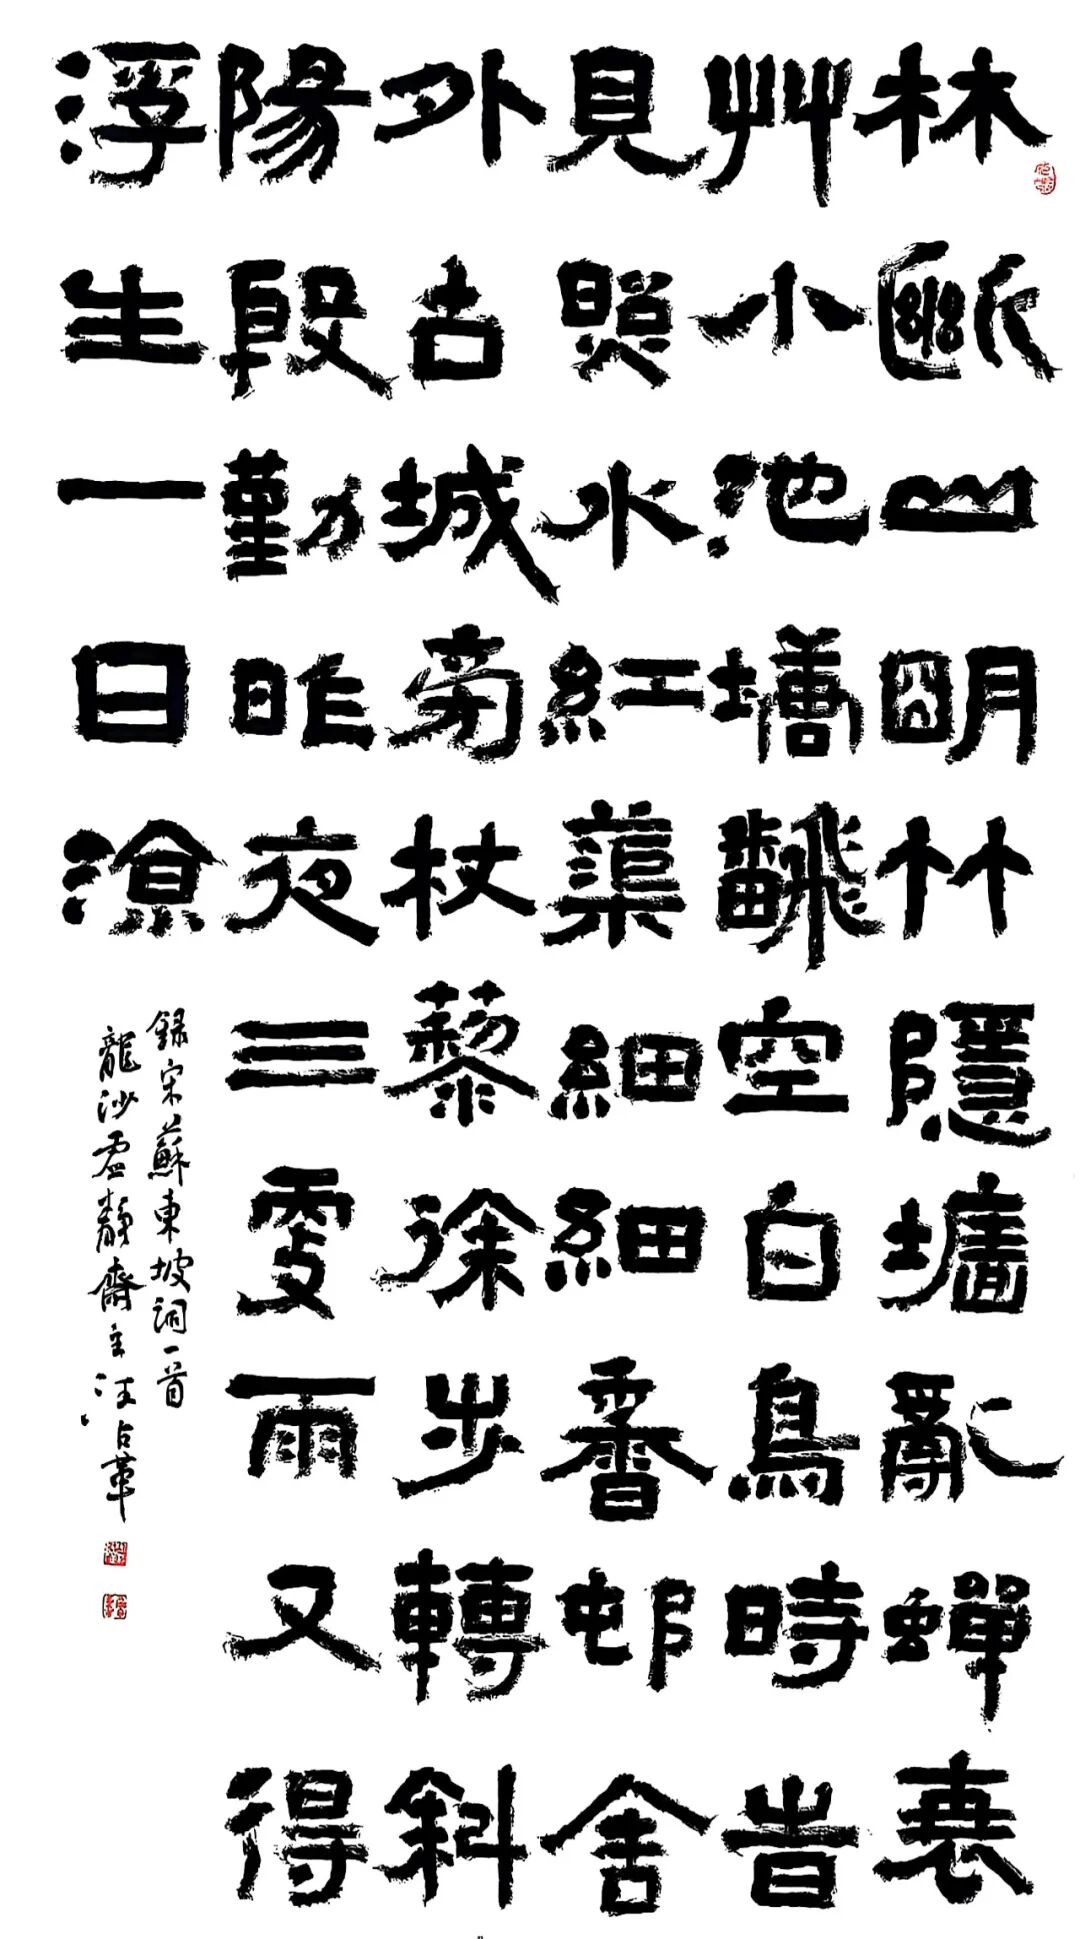 林斷山明竹隱墻亂蟬衰
艸小池塘飜空白鳥時旹
見照水紅蕖細細香邨舍
外古城旁杖藜徐步轉斜
陽殷勤昨夜三更雨又得
浮生一日涼
録宋蘇東坡詞一首
龍沙虛靜齋主汪占革